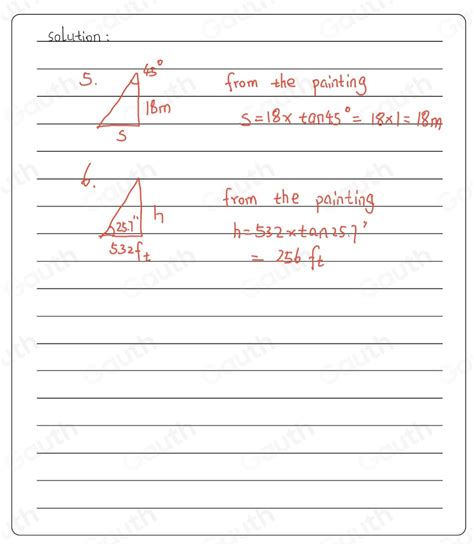 Solution :
5.
45°
18m
S
from the painting
S = 18 x tan45° = 18x1 = 18m
6.
25.7°
h
532ft
from the painting
h = 532 x tan 25.7°
= 256 ft
Gauth